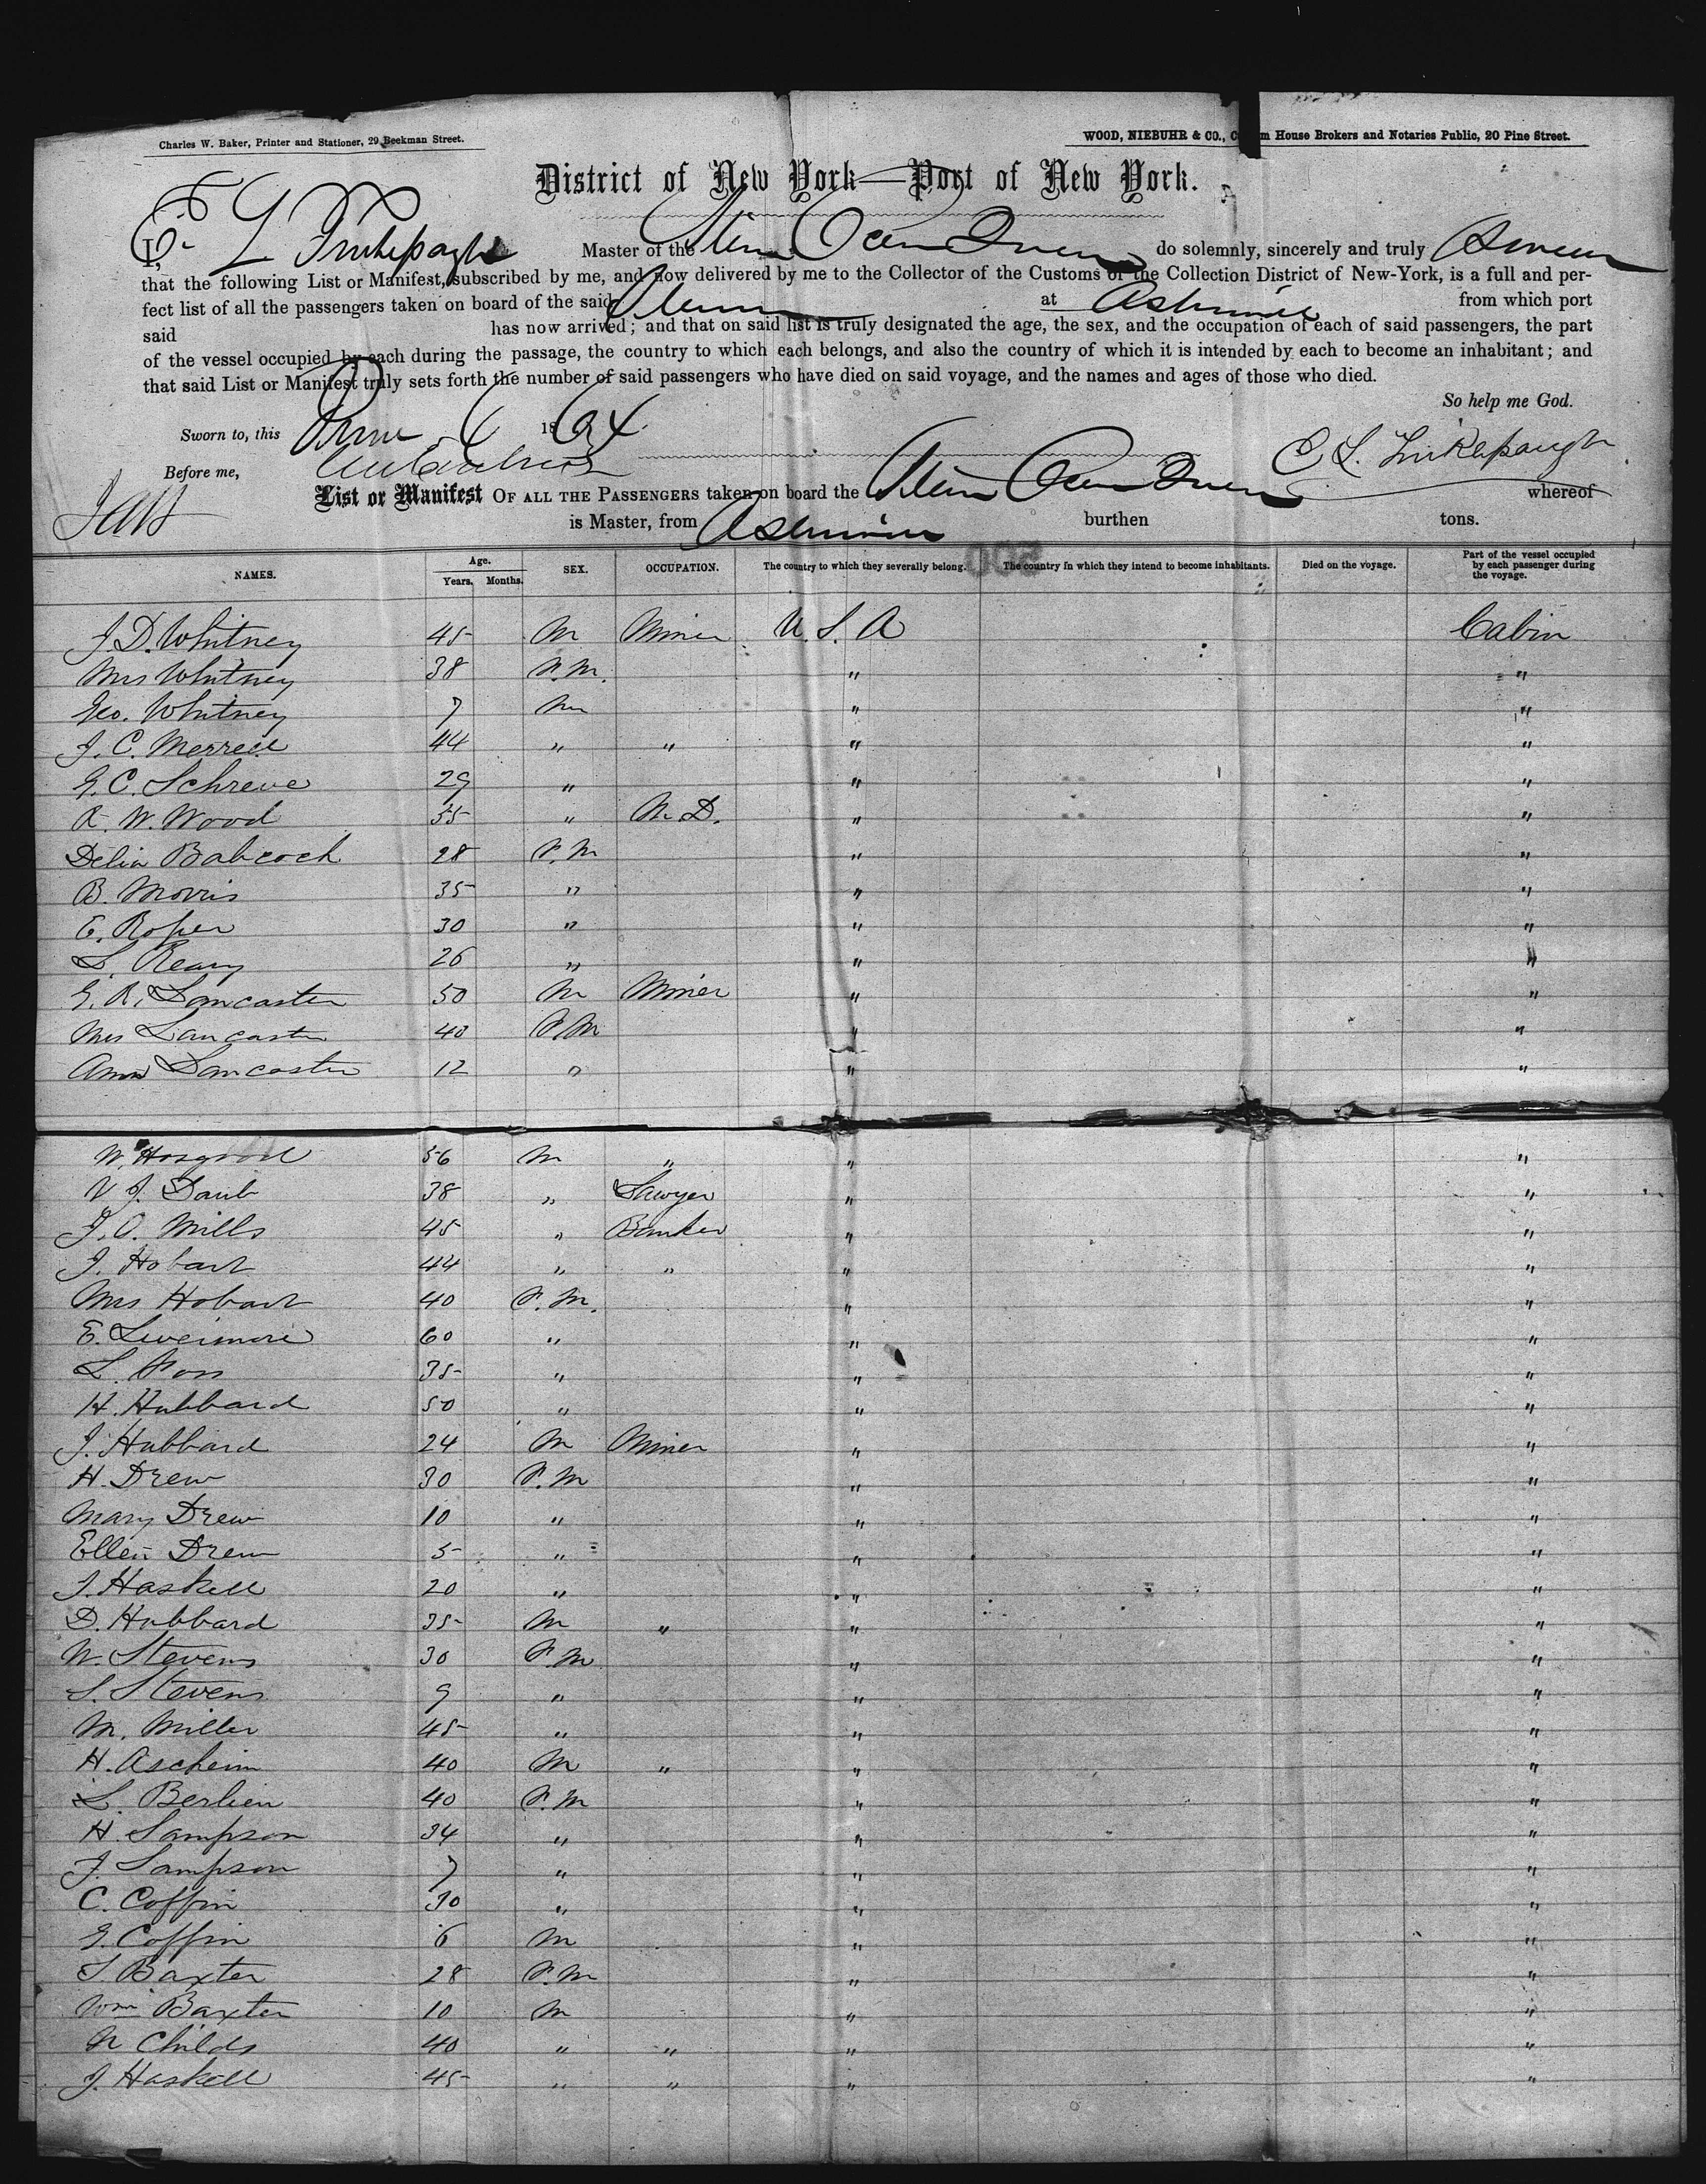 Charles W. Baker, Printer and Stationer, 29 Beekman Street.
WOOD, NIEBUHR & CO., C m House Brokers and Notaries Public, 20 Pine Street.
District of New York—Port of New York.
I, E L Tinklepaugh Master of the Steamer Ocean Queen do solemnly, sincerely and truly Swear
that the following List or Manifest, subscribed by me, and now delivered by me to the Collector of the Customs of the Collection District of New-York, is a full and per-
fect list of all the passengers taken on board of the said Steamer at Aspinwall from which port
said has now arrived; and that on said list is truly designated the age, the sex, and the occupation of each of said passengers, the part
of the vessel occupied by each during the passage, the country to which each belongs, and also the country of which it is intended by each to become an inhabitant; and
that said List or Manifest truly sets forth the number of said passengers who have died on said voyage, and the names and ages of those who died.
So help me God.
Sworn to, this June 6 1864
Before me, E L Tinklepaugh
List or Manifest OF ALL THE PASSENGERS taken on board the Steamer Ocean Queen whereof
is Master, from Aspinwall burthen tons.
NAMES. Age. Years. Months. SEX. OCCUPATION. The country to which they severally belong. The country in which they intend to become inhabitants. Died on the voyage. Part of the vessel occupied by each passenger during the voyage.
J. D. Whitney 45 M Miner U. S. A Cabin
Mrs Whitney 38 F. M. " "
Geo. Whitney 7 M " "
J. C. Merrell 44 " " " "
G. C. Schreve 29 " " "
R. W. Wood 35 " M. D. " "
Delia Babcock 28 F. M " "
B. Morris 35 " " "
E. Roper 30 " " "
S. Reary 26 " " "
G. R. Lancaster 50 M Miner " "
Mrs Lancaster 40 F. M " "
Anna Lancaster 12 " " "
W. Hosgood 56 M " " "
V J. Daub 38 " Lawyer " "
J. O. Mills 45 " Banker " "
J. Hobart 44 " " " "
Mrs Hobart 40 F. M. " "
E. Liveimore 60 " " "
L. Foss 35 " " "
H. Hubbard 50 " " "
J. Hubbard 24 M Miner " "
H. Drew 30 F. M " "
Mary Drew 10 " " "
Ellen Drew 5 " " "
J. Haskell 20 " " "
D. Hubbard 35 M " " "
W. Stevens 30 F. M " "
S. Stevens 9 " " "
M. Miller 45 " " "
H. Ascheim 40 M " " "
L. Berlien 40 F. M " "
H. Sampson 34 " " "
J. Sampson 7 " " "
C. Coffin 30 " " "
G. Coffin 6 M " "
S. Baxter 28 F. M " "
Wm Baxter 10 M " "
N Childs 40 " " " "
J. Haskell 45 " " " "